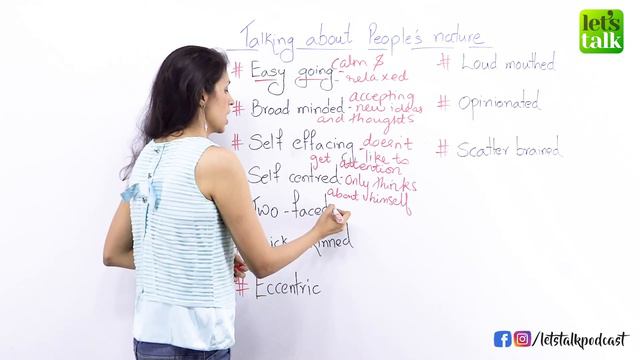 Talking about People's nature
# Easy going - calm &
relaxed
Broad minded - accepting
new ideas
and thoughts
# Self effacing - doesn't
like to
get attention
Self centred - only thinks
about himself
Two-faced
Eccentric
# Loud mouthed
# Opinionated
# Scatter brained
let's
talk
/letstalkpodcast